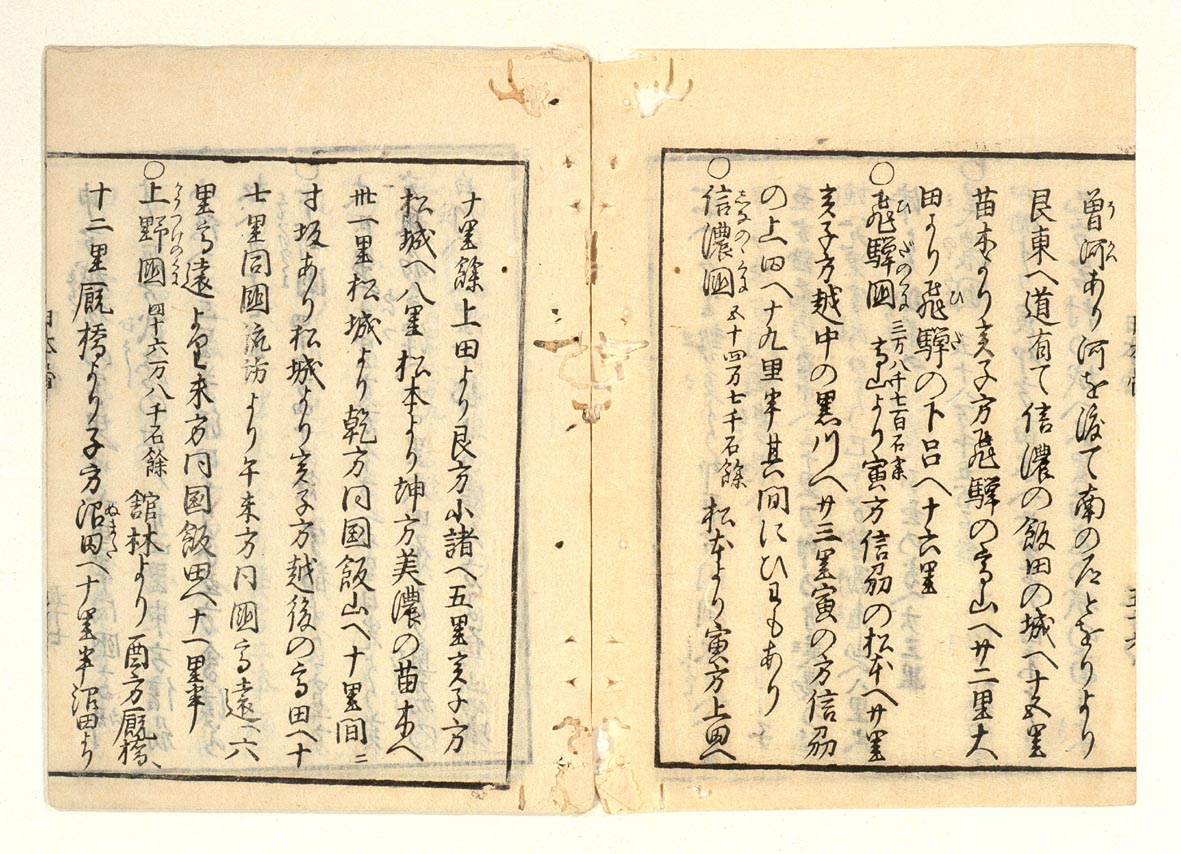 曽河あり河を渡て南の尾とをりより
艮東へ道有て信濃の飯田の城へ十五里
苗木より亥子方飛驒の高山へ廿二里大
田より飛驒の下呂へ十六里
○飛驒國 三万八千七百石余 高山より寅方信刕の松本へ廿里
亥子方越中の黒川へ廿三里寅の方信刕
の上田へ十九里半其间にひわもあり
○信濃國 五十四万七千石餘 松本より寅方上田へ
十里餘上田より艮方小諸へ五里亥子方
松城へ八里松本より坤方美濃の苗木へ
卅一里松城より乾方同国飯山へ十里間ニ
寸坂あり松城より亥子方越後の高田へ十
七里同國流訪より午未方同國高遠へ六
里高遠より未方同国飯田へ十一里半
○上野國 四十六万八千石餘 舘林より酉方厩橋へ
十二里厩橋より子方沼田へ十里半沼田より